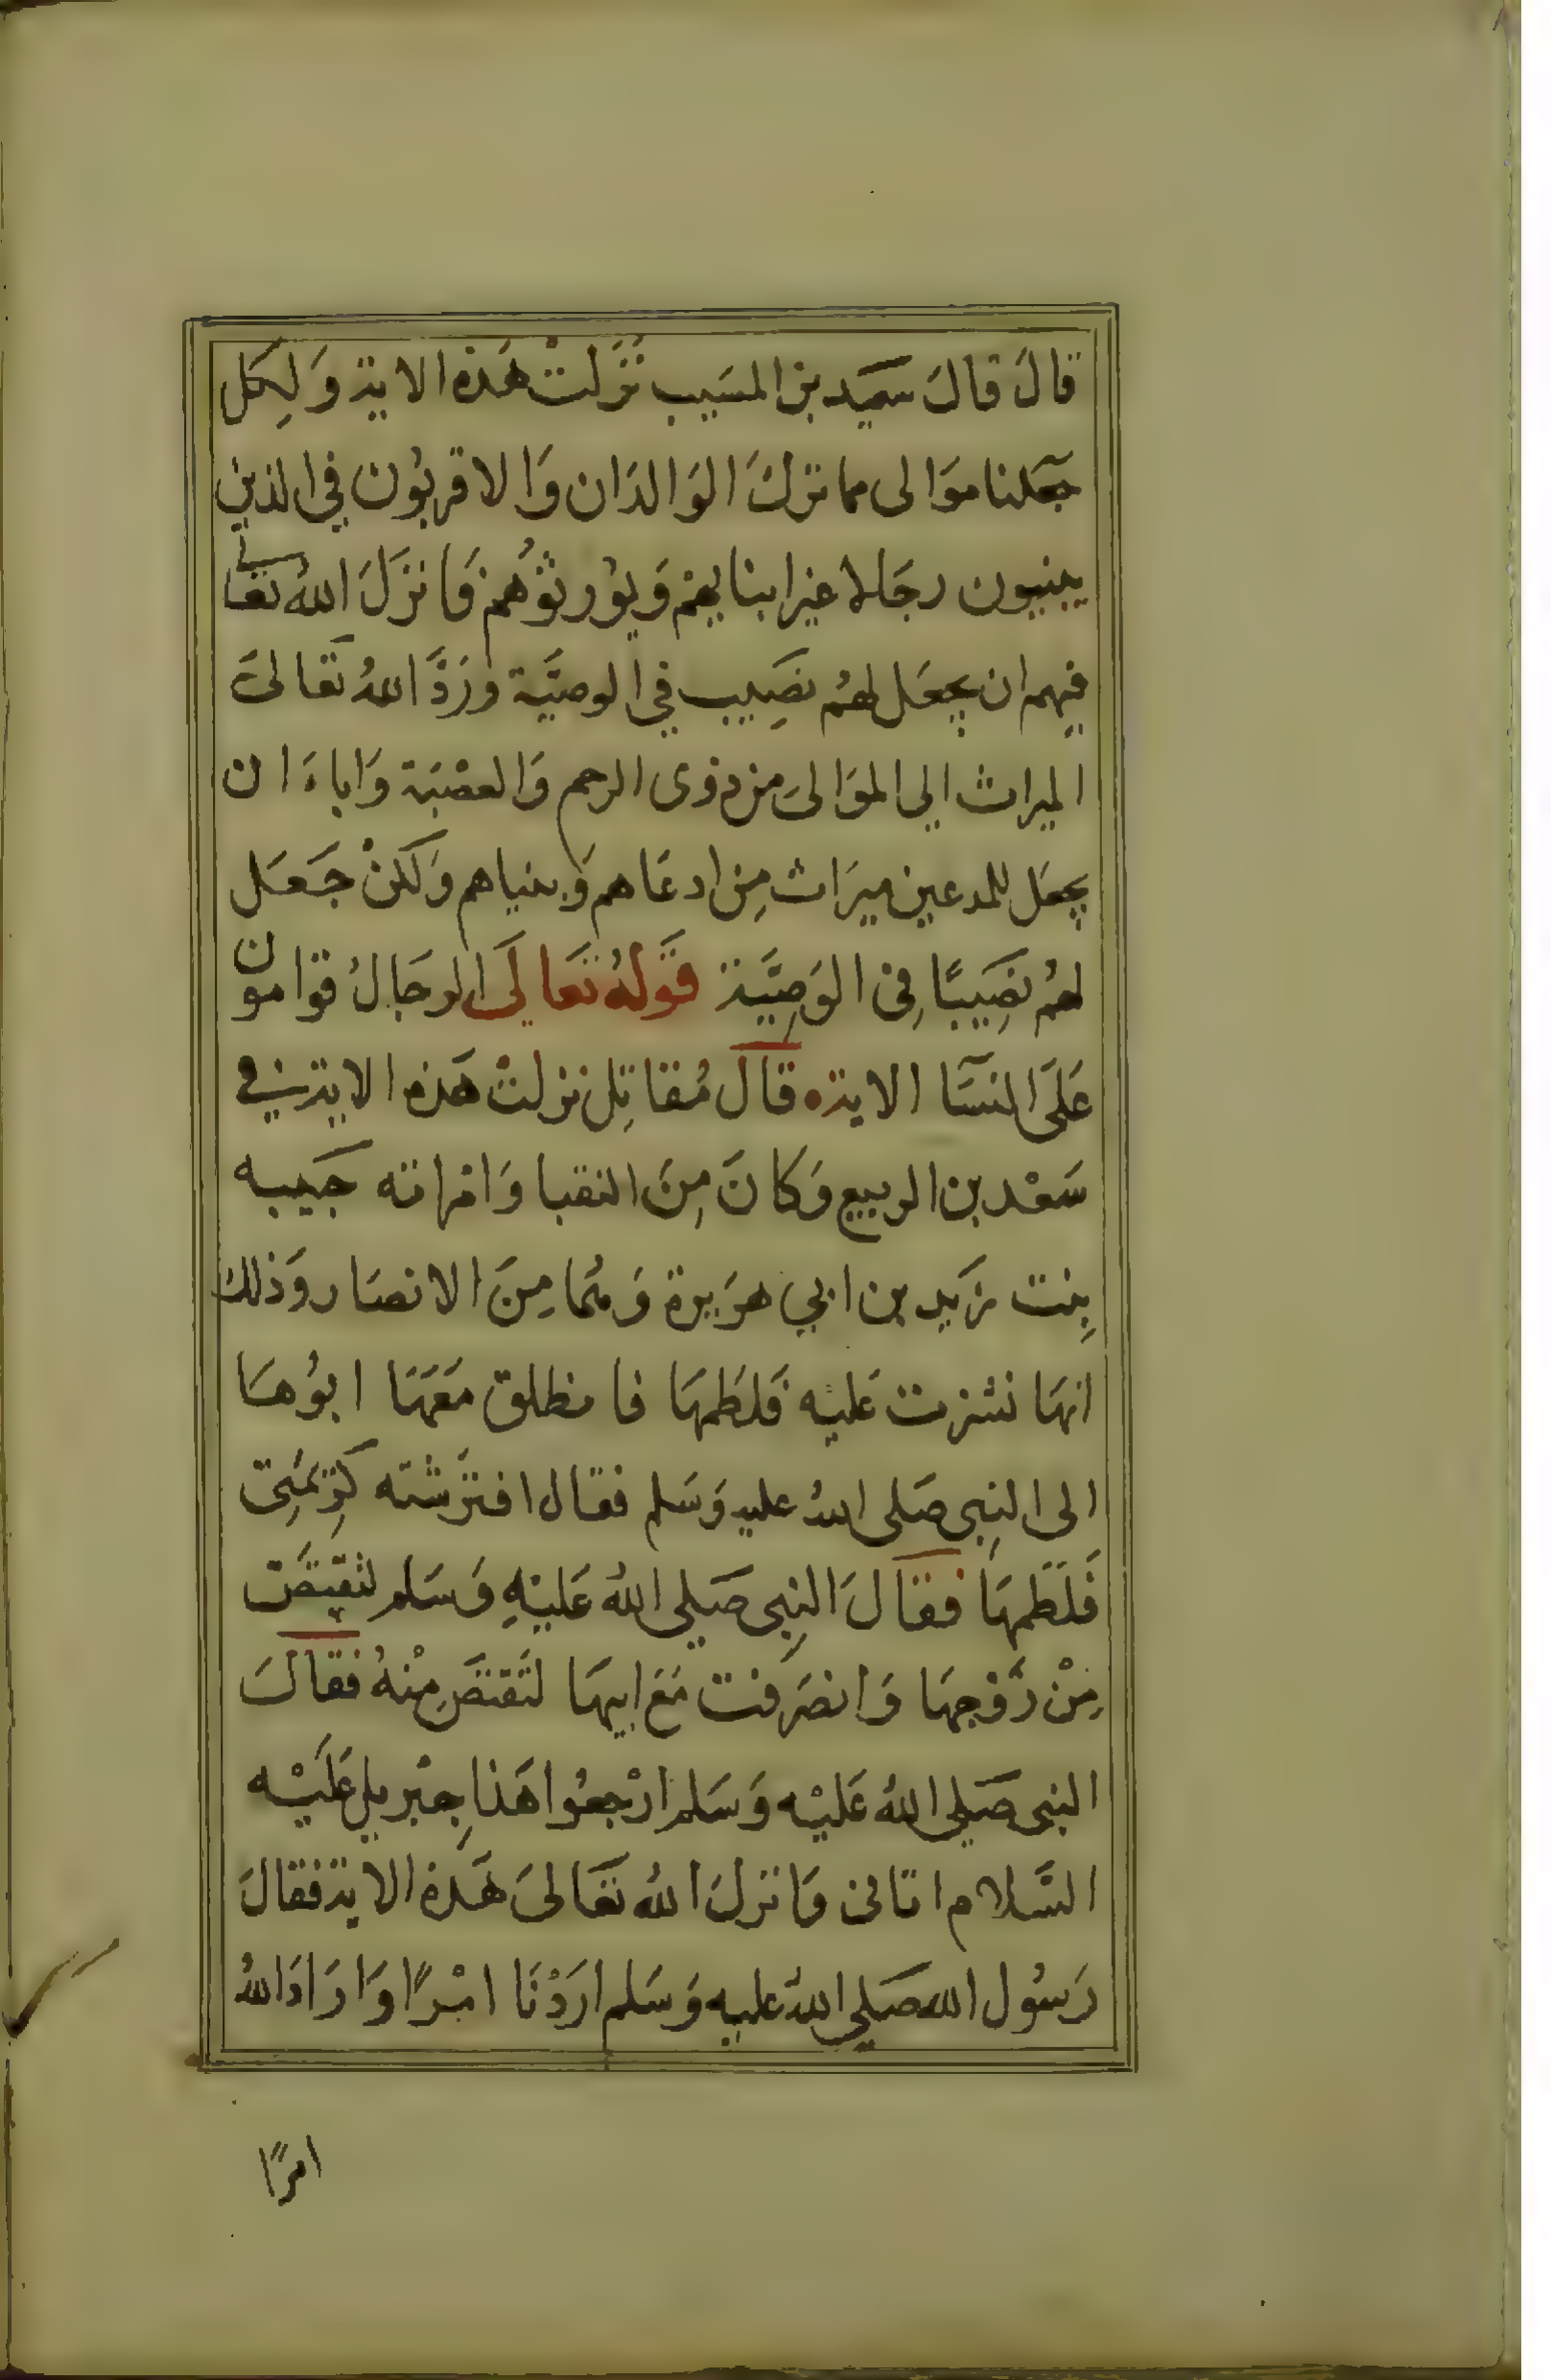 قالَ قالَ سعَيد بن المسَيب نَزَلتْ هَذه الاية وَلِكل
جَعَلنا موَالى مما تركَ الوَالدَان وَالاقربُون في الذين
يتبنون رجَالا غيرابنايهمْ وَيوُرثوُهُم فَانزَلَ اللهُ تعَالى
فيهم ان يجعَل لهُمْ نصَيِب في الوصيَّة وَرَدَّ اللهُ تَعَالىَ
الميراث الي الموَالىَ من ذوى الرحم وَالعصْبَة وَاباءَ ان
يجعَل للمدعين ميرَاث مِن ادعَاهم وَبنياهم وَلكنْ جَعَل
لهُمْ نصِيَبًا فِى الوَصِيَّة قَولهُ تعَالَى الرجَالُ قوامون
عَلَى النسَّا الاية ٥ قالَ مُقاتِل نزلتْ هَذه الاية في
سَعْد بن الربيع وَكانَ مِنَ النقبا وَامْراته حَبيبه
بِنت زَيد بن ابي هرَيرة وَهُمَا مِنَ الانصَار وَذلك
انهَا نشزت عَليه فَلطَمهَا فانطلق مَعَهَا ابوُهَا
الى النِبى صَلى اللهُ عليه وَسَلم فقال افترَشته كرِيمَتِى
فَلَطَمهَا فقالَ النِبى صَلي اللهُ عَليْهِ وَسَلم لتقتصَّ
مِنْ زَوْجهَا وَانصَرَفت مَعَ ابيهَا لتَقتصَّ مِنْهُ فقالَ
النبى صَلي اللهُ عَليْه وَسَلم ارْجعُوا هَذا جِبْريل عَلَيْه
السَّلام اتانى وَانزلَ اللهُ تَعَالىَ هَذه الاية فقالَ
رَسُول الله صَلي اللهُ عليه وَسَلم ارَدْنَا امْرًا وَارَادَ اللهُ
امرًا